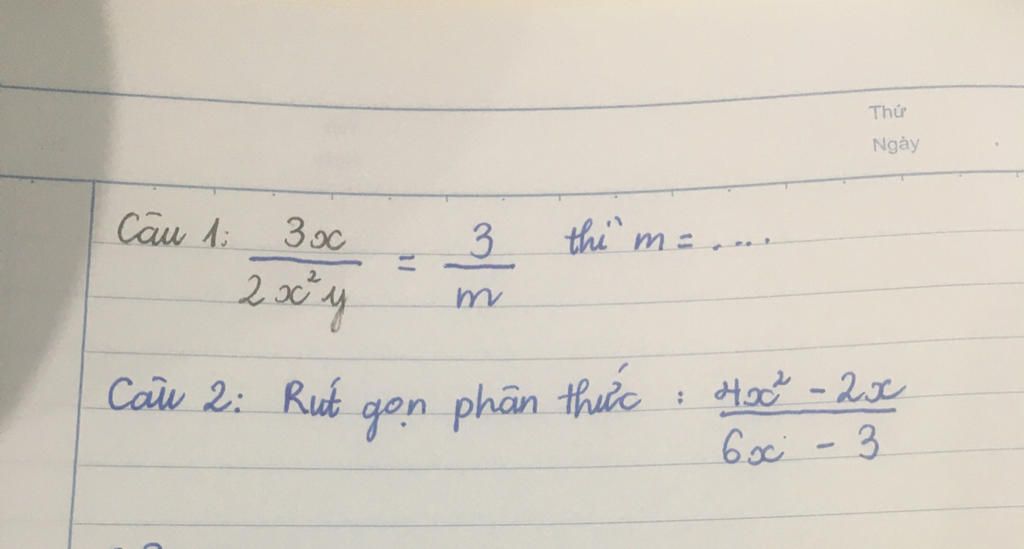 Thứ
Ngày
Câu 1: \frac{3x}{2x²y} = \frac{3}{m} thì m = ....
Câu 2: Rút gọn phân thức : \frac{4x² - 2x}{6x - 3}